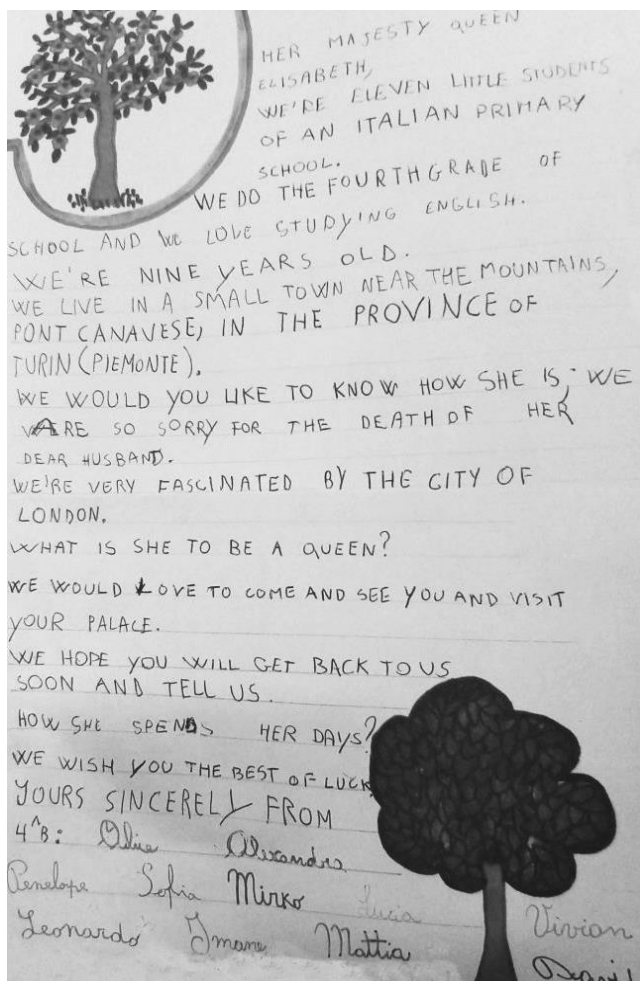 HER MAJESTY QUEEN
ELISABETH,
WE'RE ELEVEN LITTLE STUDENTS
OF AN ITALIAN PRIMARY
SCHOOL.
WE DO THE FOURTH GRADE OF
SCHOOL AND WE LOVE STUDYING ENGLISH.
WE'RE NINE YEARS OLD.
WE LIVE IN A SMALL TOWN NEAR THE MOUNTAINS,
PONT CANAVESE, IN THE PROVINCE OF
TURIN (PIEMONTE).
WE WOULD YOU LIKE TO KNOW HOW SHE IS; WE
ARE SO SORRY FOR THE DEATH OF HER
DEAR HUSBAND.
WE'RE VERY FASCINATED BY THE CITY OF
LONDON.
WHAT IS SHE TO BE A QUEEN?
WE WOULD LOVE TO COME AND SEE YOU AND VISIT
YOUR PALACE.
WE HOPE YOU WILL GET BACK TO US
SOON AND TELL US.
HOW SHE SPENDS HER DAYS?
WE WISH YOU THE BEST OF LUCK
YOURS SINCERELY FROM
4^B: Alexandra
Penelope Sofia Mirko Lucia Vivian
Leonardo Imane Mattia